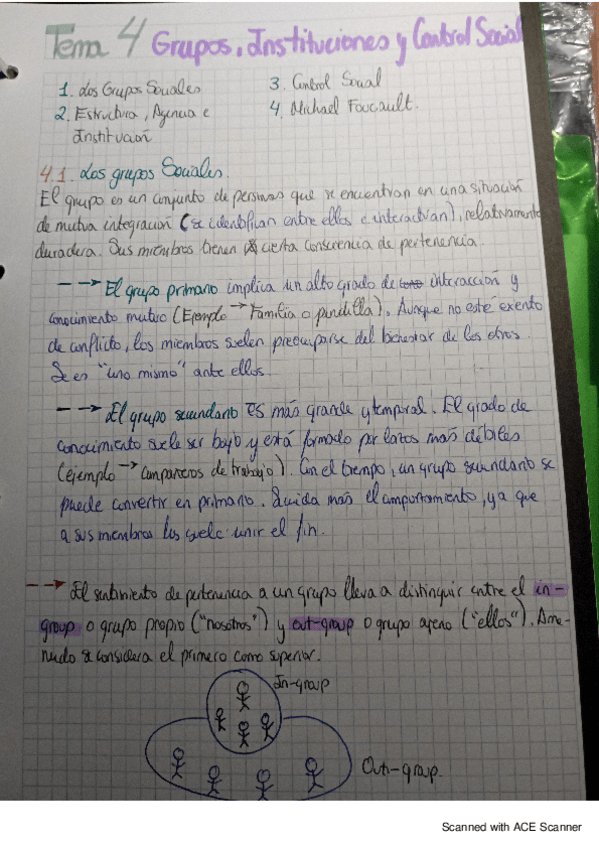 Tema 4 Grupos, Instituciones y Control Social
1. Los Grupos Sociales
2. Estructura, Agencia e
Institución
3. Control Social
4. Michael Foucault.
4.1. Los grupos Sociales.
El grupo es un conjunto de personas que se encuentran en una situación
de mutua integración (se identifican entre ellos e interactúan), relativamente
duradera. Sus miembros tienen cierta consciencia de pertenencia.
--→ El grupo primario implica un alto grado de interacción y
conocimiento mutuo (Ejemplo → Familia o pandilla). Aunque no esté exento
de conflicto, los miembros suelen preocuparse del bienestar de los otros.
Se es "uno mismo" ante ellos.
--→ El grupo secundario es más grande y temporal. El grado de
conocimiento suele ser bajo y está formado por lazos más débiles
(ejemplo → compañeros de trabajo). Con el tiempo, un grupo secundario se
puede convertir en primario. Se cuida más el comportamiento, ya que
a sus miembros los suele unir el fin.
--→ El sentimiento de pertenencia a un grupo lleva a distinguir entre el in-
group o grupo propio ("nosotros") y out-group o grupo ajeno ("ellos"). A me-
nudo se considera el primero como superior.
In-group
Out-group.
Scanned with ACE Scanner